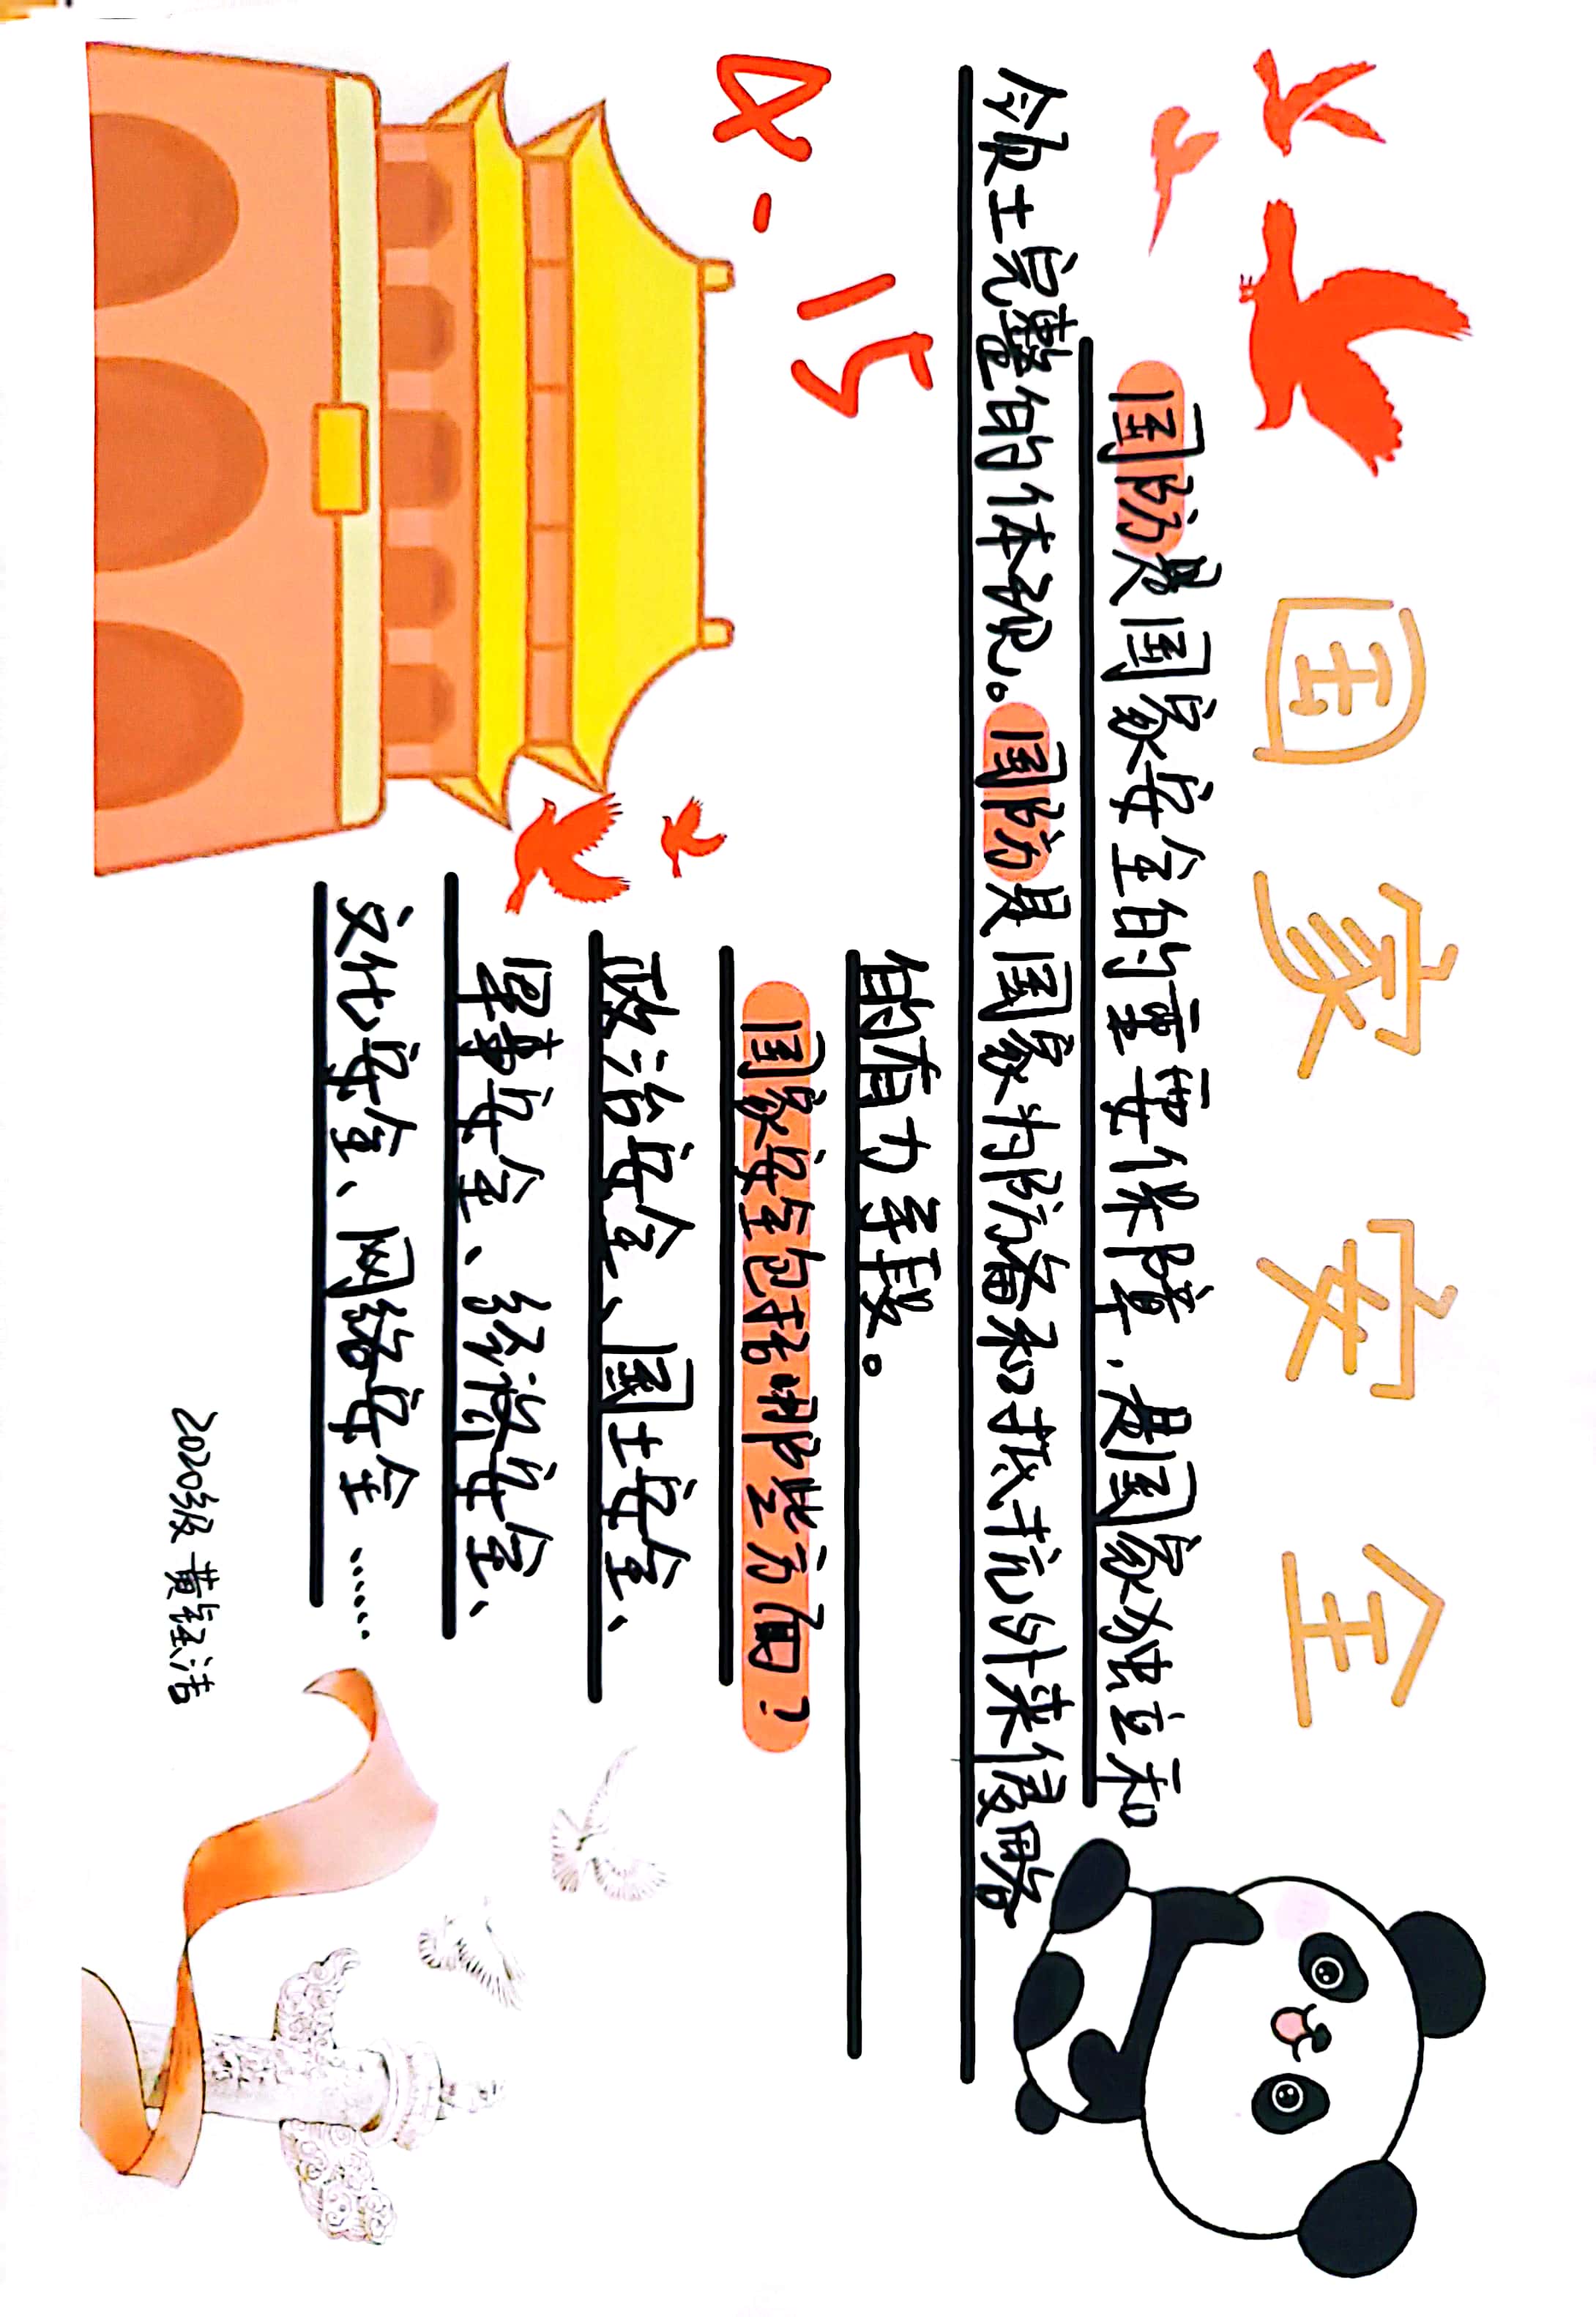 国家安全
国防是国家安全的重要保障，是国家独立和
领土完整的体现。国防是国家为防备和抵抗外来侵略
的有力手段。
4-15
国家安全包括哪些方面？
政治安全、国土安全、
军事安全、经济安全、
文化安全、网络安全……
2020级 黄钰洁